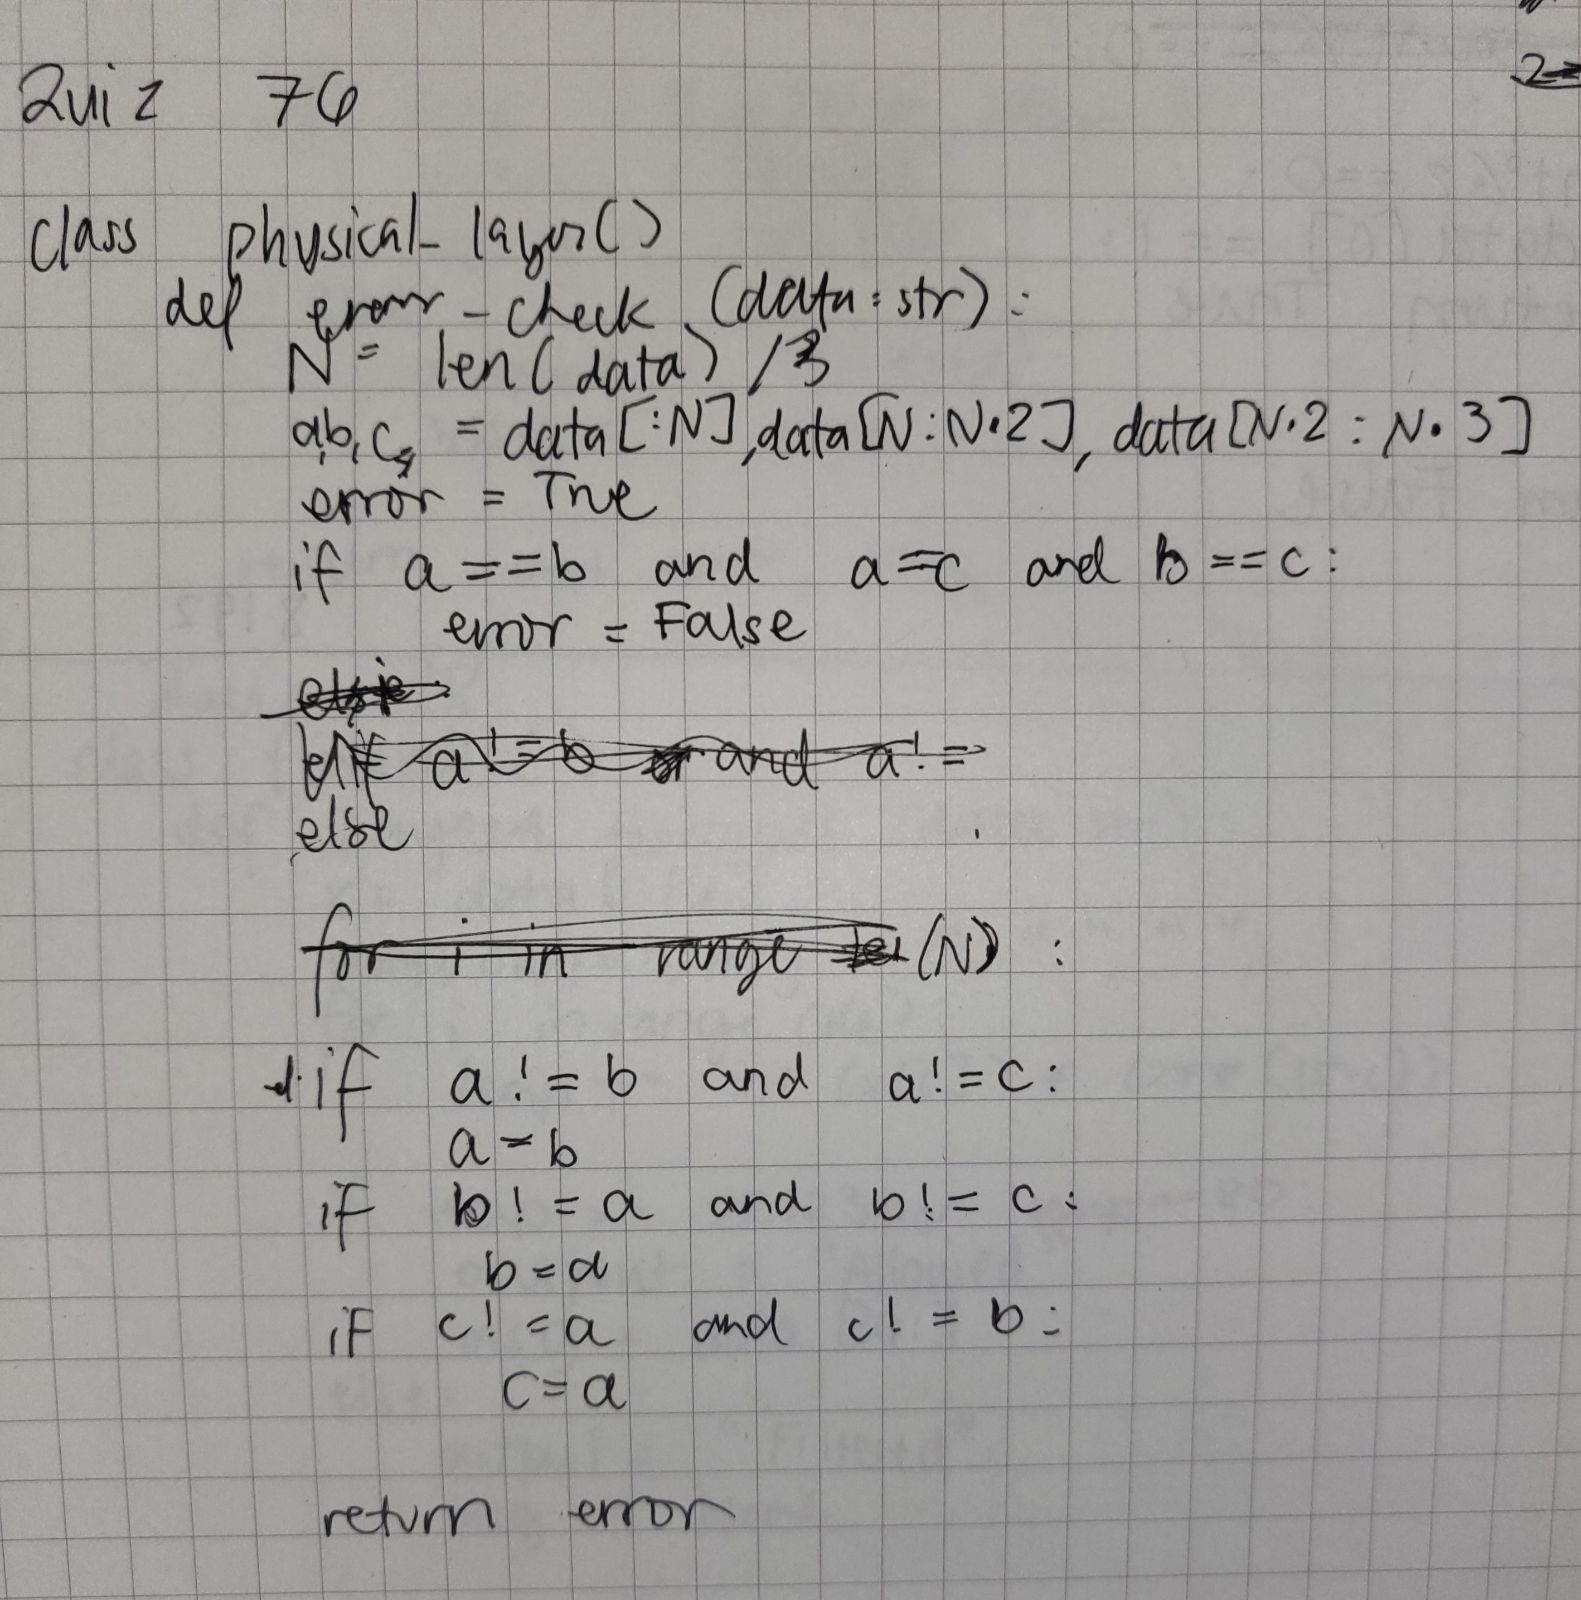 Quiz 76
class physical_layer()
def error_check (data:str):
N = len(data) /3
a,b,c, = data[:N], data[N:N·2], data[N·2 : N·3]
error = True
if a==b and a==c and b==c:
error = False
else
if a!=b and a!=c:
a=b
if b!=a and b!=c:
b=a
if c!=a and c!=b:
c=a
return error